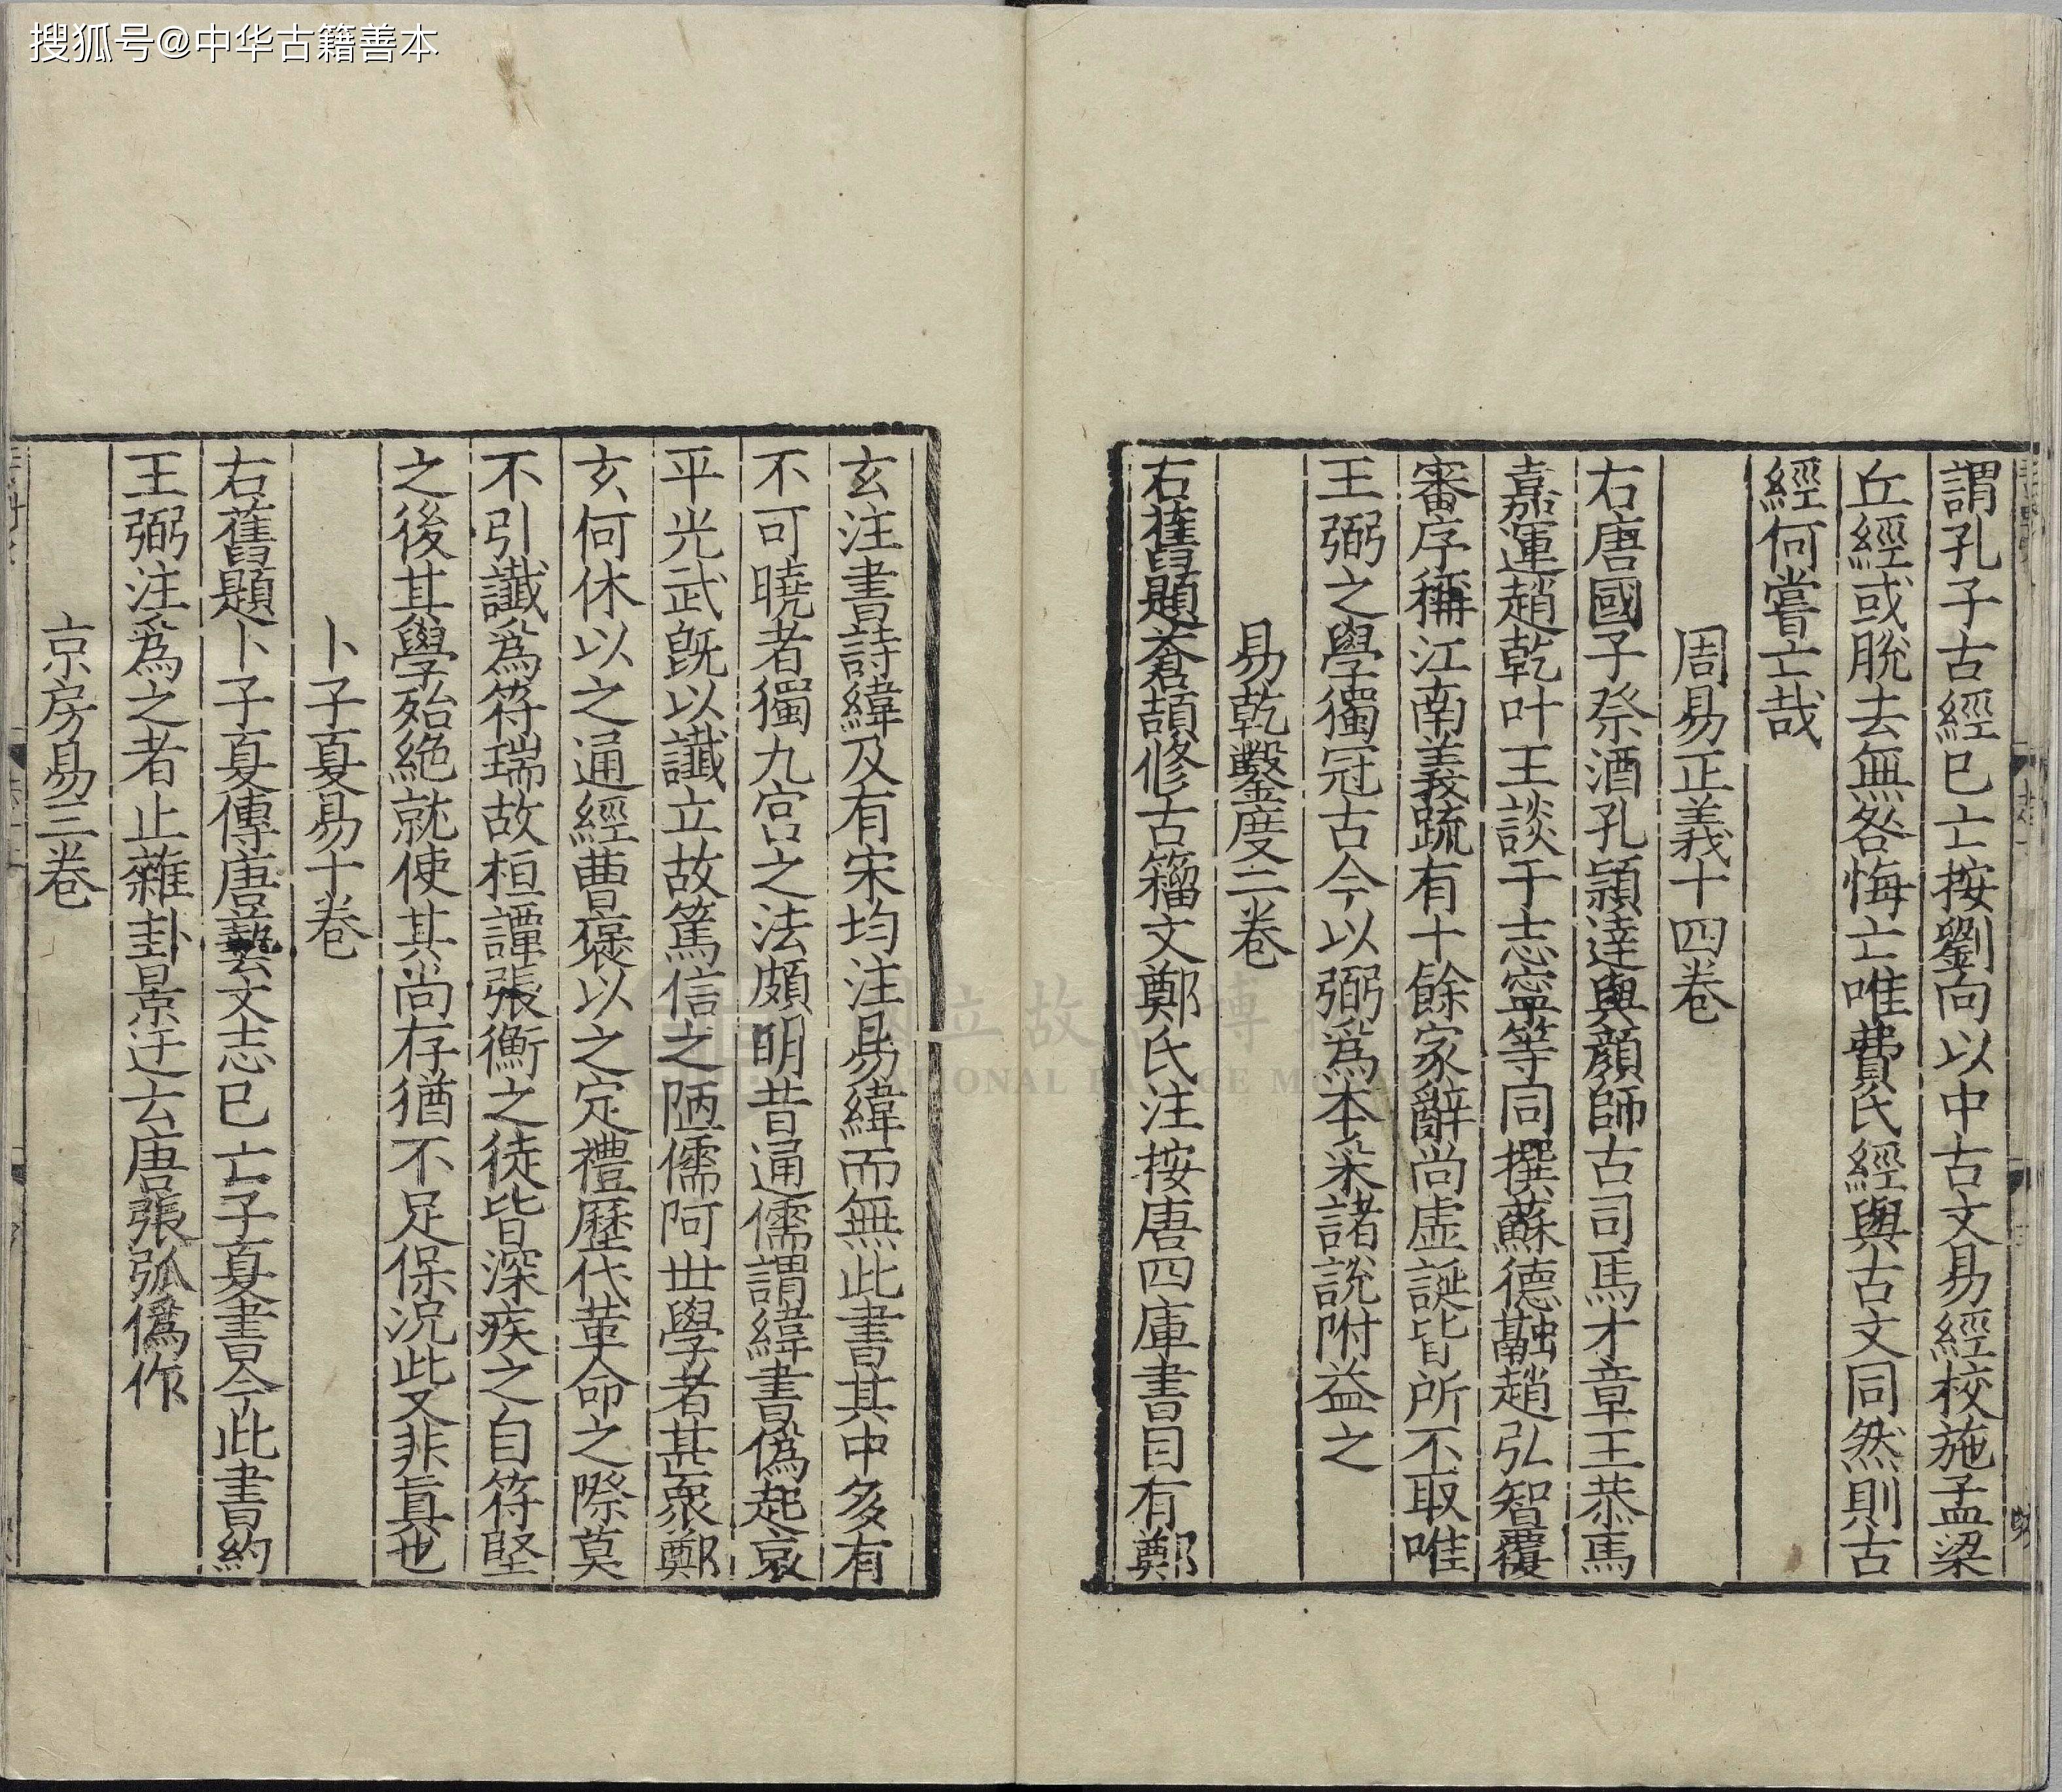 搜狐号@中华古籍善本
謂孔子古經巳亡按劉向以中古文易經校施孟梁
丘經或脫去無咎悔亡唯費氏經與古文同然則古
經何嘗亡哉
周易正義十四卷
右唐國子祭酒孔穎達與顏師古司馬才章王恭馬
嘉運趙乾叶王談于志寧等同撰蘇德融趙弘智覆
審序稱江南義疏有十餘家辭尚虛誕皆所不取唯
王弼之學獨冠古今以弼爲本采諸說附益之
易乾鑿度二卷
右舊題蒼頡修古籀文鄭氏注按唐四庫書目有鄭
玄注書詩緯及有宋均注易緯而無此書其中多有
不可曉者獨九宮之法頗明昔通儒謂緯書偽起哀
平光武旣以讖立故篤信之陋儒阿世學者甚衆鄭
玄何休以之通經曹襃以之定禮歷代革命之際莫
不引讖爲符瑞故桓譚張衡之徒皆深疾之自符堅
之後其學殆絶就使其尚存猶不足保況此又非真也
卜子夏易十卷
右舊題卜子夏傳唐藝文志巳亡子夏書今此書約
王弼注爲之者止雜卦景迂云唐張弧僞作
京房易三卷
國立故宮博物院
NATIONAL PALACE MUSEUM